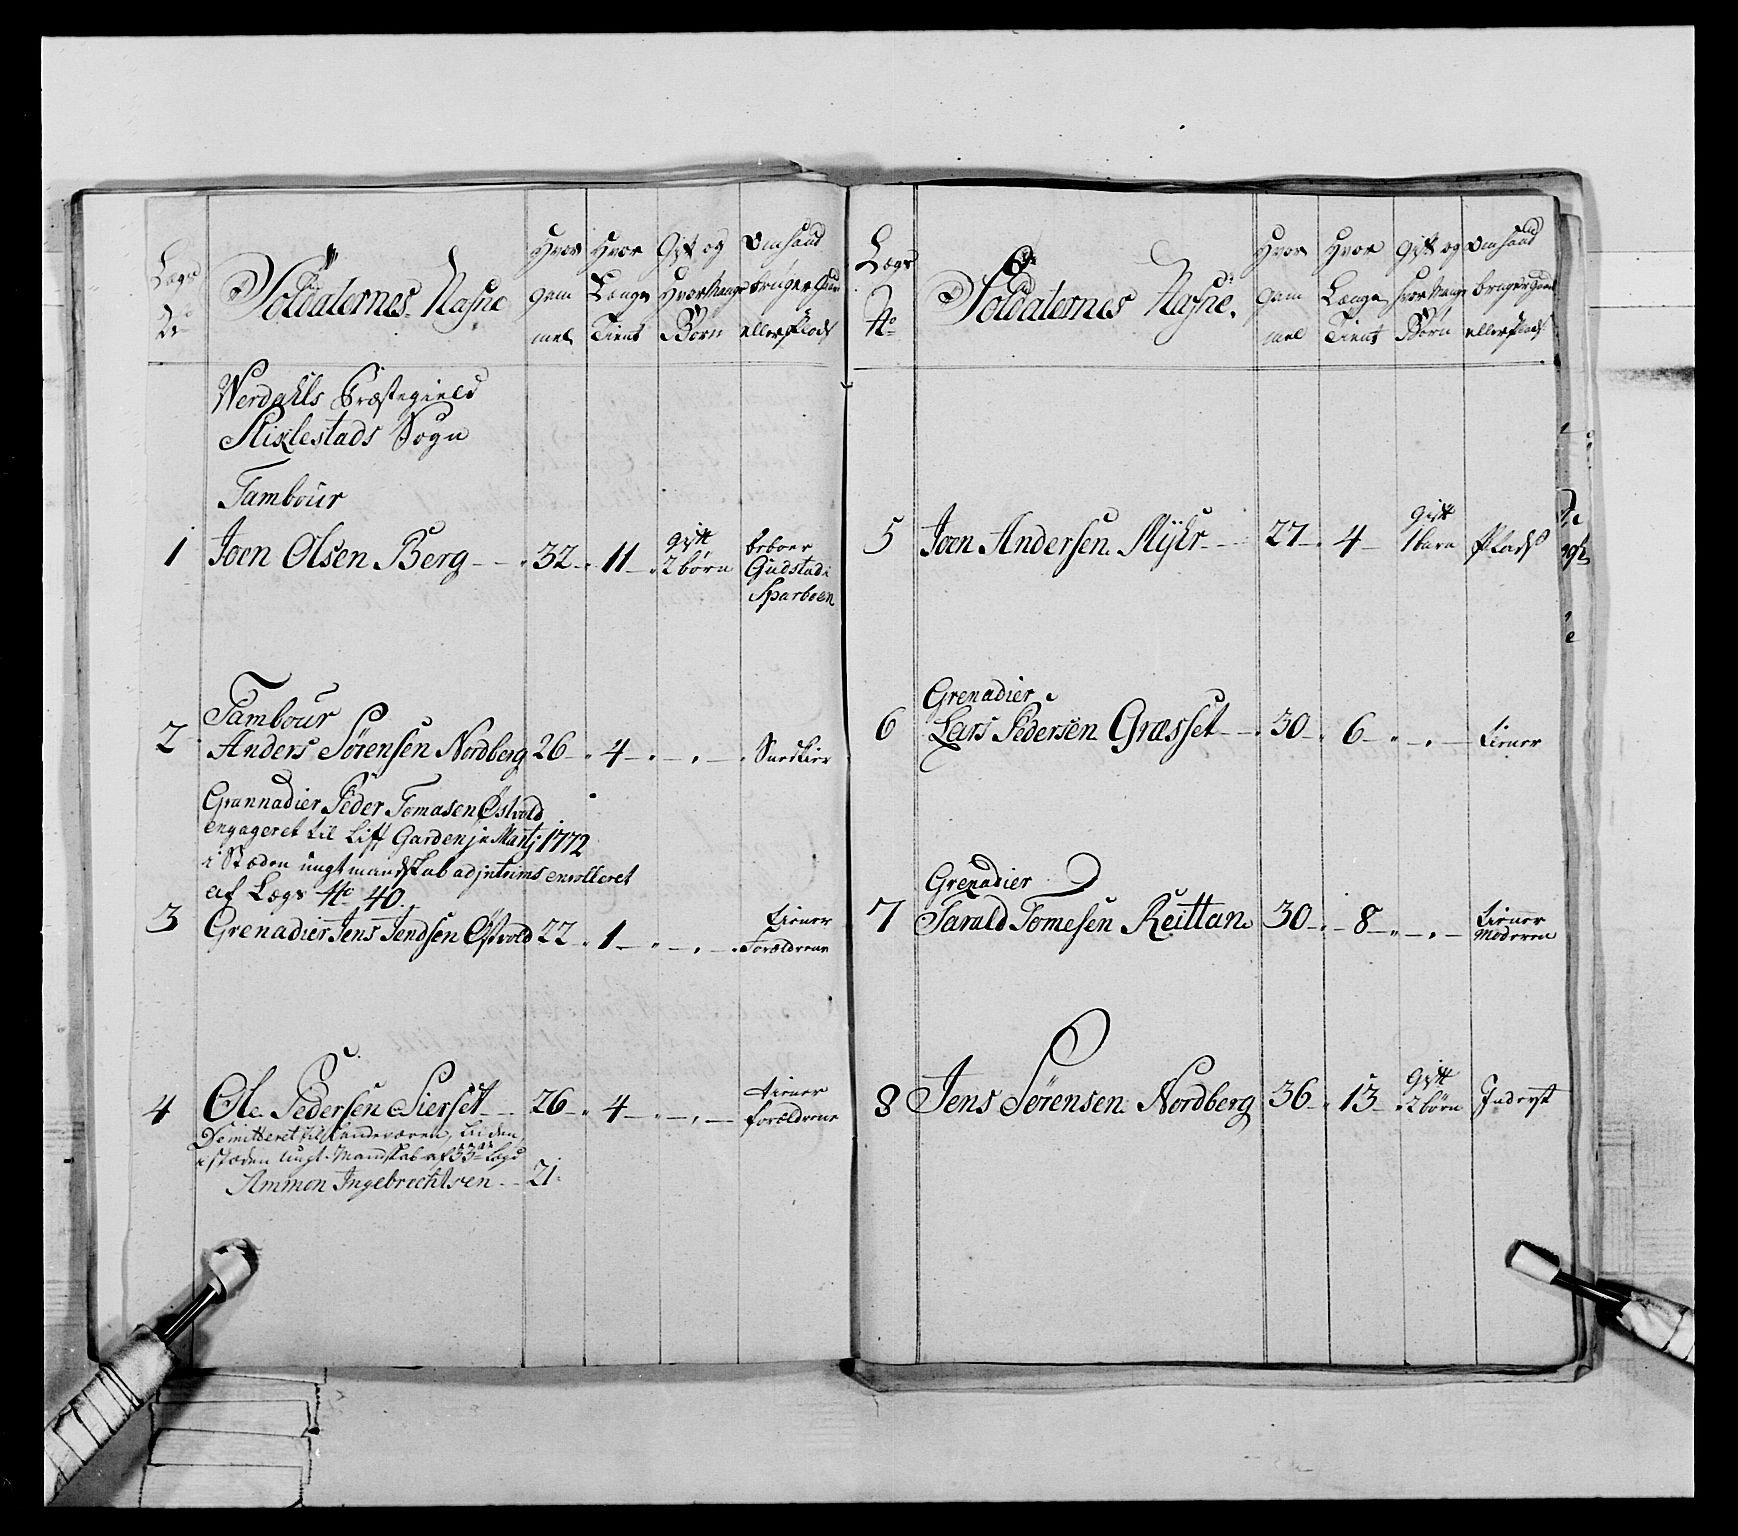 Lægs
No
Soldaternes Nafne
Hvor
gam
mel
Hvor
Længe
Tient
Gift og
Hvor Mange
Børn
Om hand
bruger Gaard
eller Plads
Werdahls Præstegield
Stiklestads Sogn
Tambour
1 Joen Olsen Berg 32 11 gift
2 børn
beboer
Gudstad i
Sparboen
Tambour
2 Anders Sørensen Nordberg 26 4 Snedkier
Grannadier Peder Tomasen Østvold
engageret til Liff Garden Martj 1772
i Stæden ungt mandskab ad jntrims enrolleret
af Lægs No 40.
3 Grenadier Jens Jendsen Østvold 22 1 tiener
Forældrene
4 Ole Pedersen Sierset 26 4 tiener
forældrene
Demitteret til Landeværen,
i stæden ungt Mandskab af 33te Lægd
Ammon Ingebrechtsen 21
Lægs
No
Soldaternes Nafne.
Hvor
gam
mel
Hvor
Længe
Tient
gift og
hvor Mange
Børn
Om hand
bruger Gaard
eller Plads
5 Joen Andersen Myhr 27 4 gift
1 barn Plads
Grenadier
6 Lars Pedersen Græsset 30 6 tiener
Grenadier
7 Tarald Tomesen Reittan 30 8 tiener
Moderen
8 Jens Sørensen Nordberg 36 13 gift
2 børn Inderst